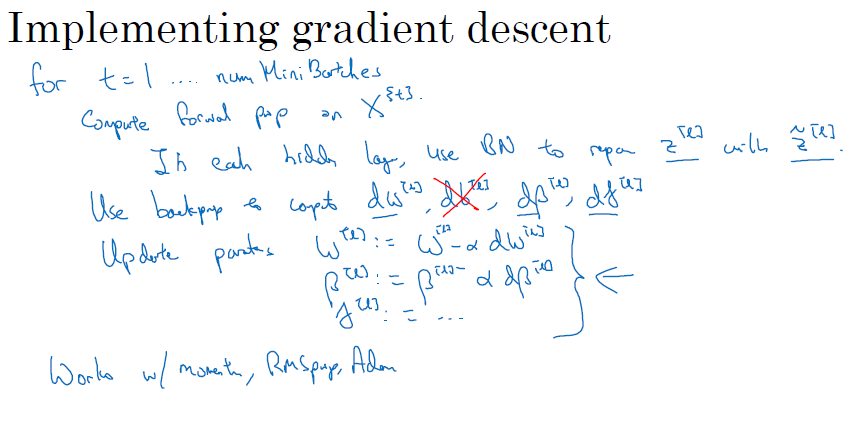 Implementing gradient descent
for t = 1 .... num Mini Batches
Compute forward prop on X^{t}.
In each hidden layer, use BN to replace z^[l] with z̃^[l].
Use backprop to compute dw^[l], db^[l], dβ^[l], dγ^[l]
Update parameters w^[l] := w^[l] - α dw^[l]
β^[l] := β^[l] - α dβ^[l]
γ^[l] := ...
Works w/ momentum, RMSprop, Adam